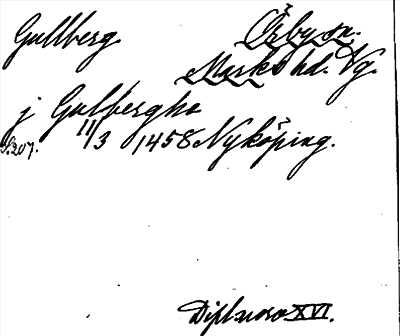 Gullberg. Örby sn.
Marks hd. Vg.
j Gulbergha
S.207. 11/3 1458 Nyköping.
Dipl. XVI.